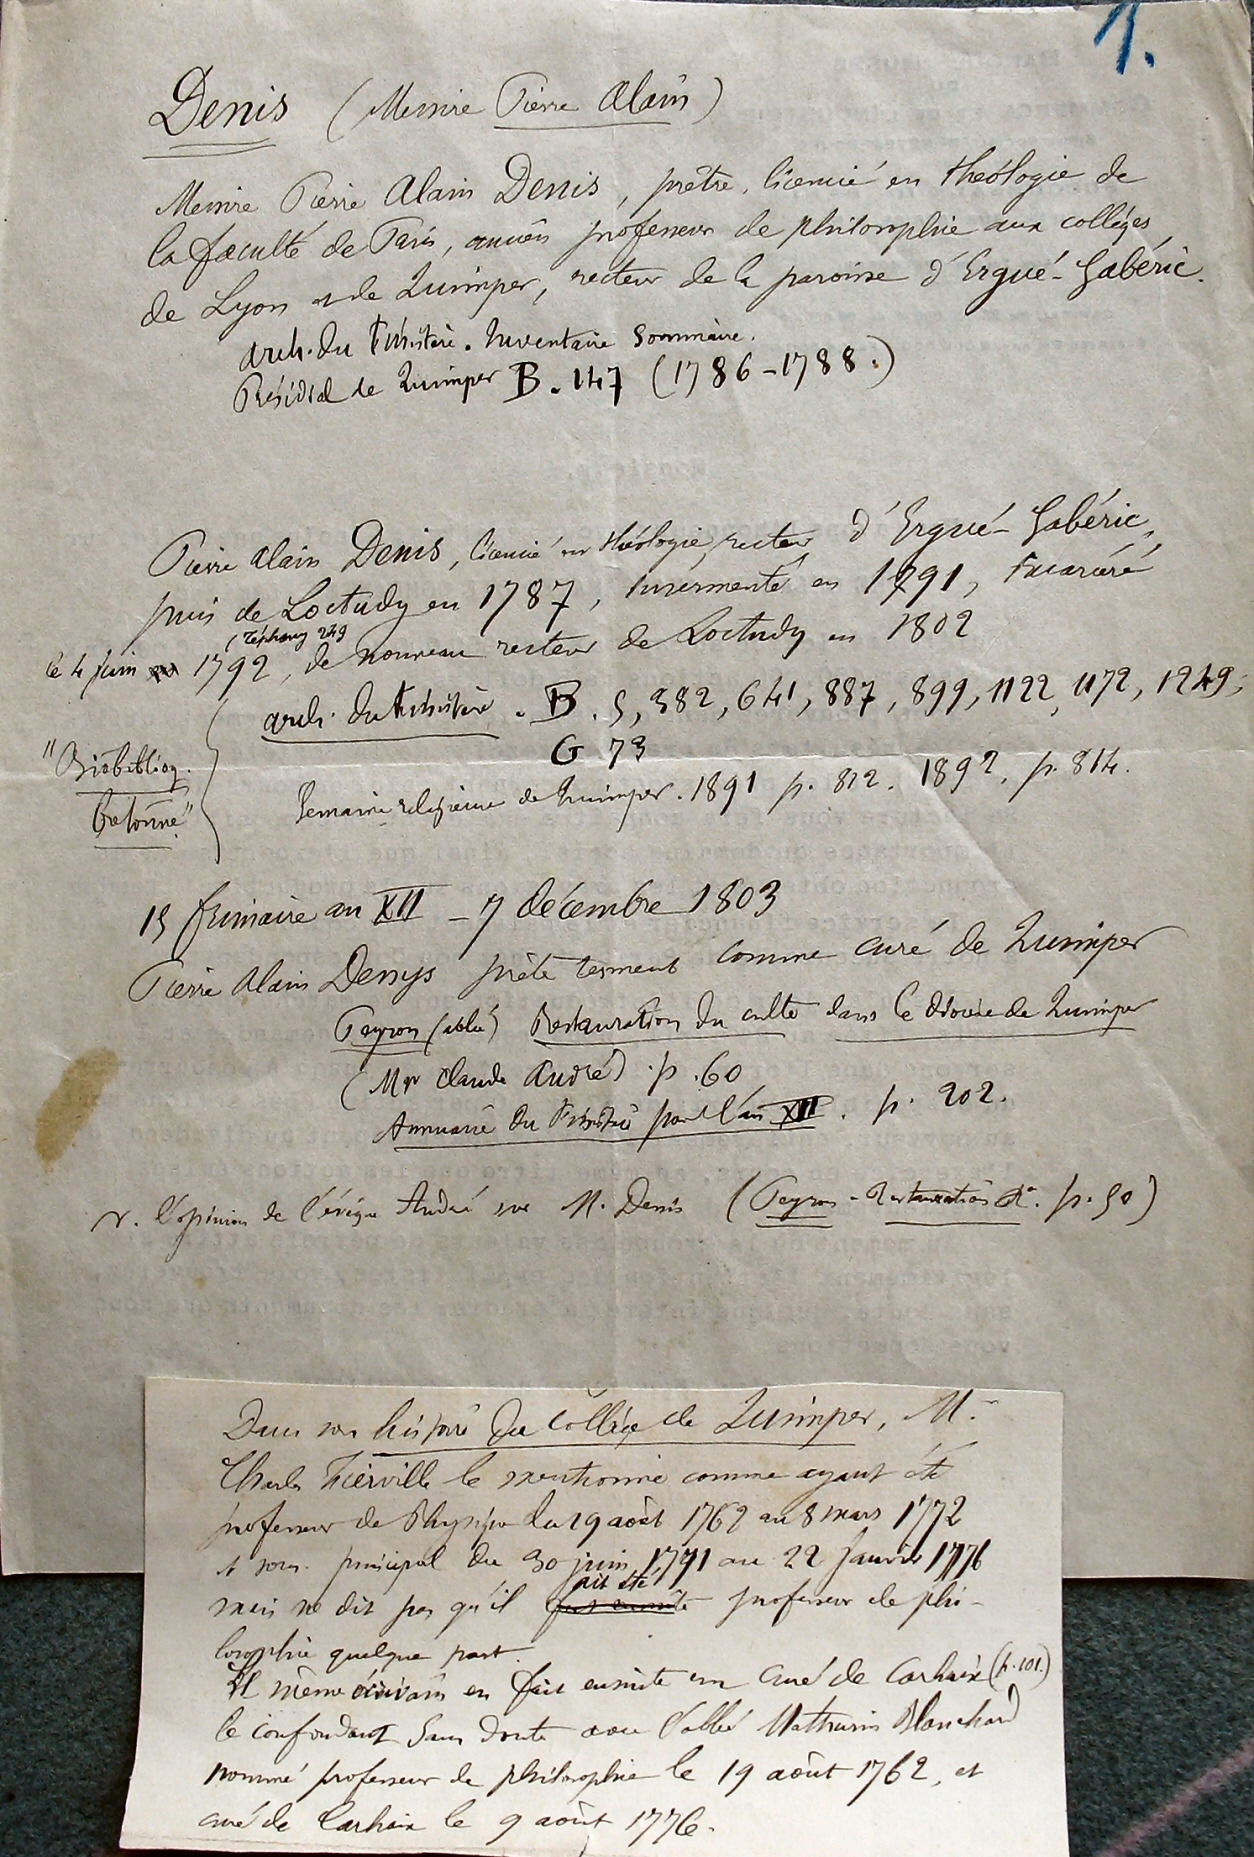 1.
Denis (Messire Pierre Alain)
Messire Pierre Alain Denis, prêtre, licencié en théologie de
la faculté de Paris, ancien professeur de philosophie aux collèges
de Lyon et de Quimper, recteur de la paroisse d'Ergué-Gabéric.
Arch. du Finistère. Inventaire Sommaire.
Présidial de Quimper B. 147 (1786-1788.)
Pierre Alain Denis, licencié en théologie, recteur d'Ergué-Gabéric,
puis de Loctudy en 1787, insermenté en 1791, incarcéré
(Téphany 249
le 4 juin 1792, de nouveau recteur de Loctudy en 1802
Arch. du Finistère. B. 5, 382, 641, 887, 899, 1122, 1172, 1249;
G 73
"Biobibliog.
bretonne"
Semaine religieuse de Quimper. 1891 p. 812. 1892, p. 814.
15 frimaire an XII - 7 décembre 1803
Pierre Alain Denys prête serment comme curé de Quimper
Peyron (abbé) Restauration du culte dans le diocèse de Quimper
(Mgr Claude André) p. 60
Annuaire du Finistère pour l'an XII. p. 202.
v. l'opinion de l'évêque André sur M. Denis (Peyron - Restauration &a. p. 50)
Dans son histoire du collège de Quimper, M.
Charles Fierville le mentionne comme ayant été
professeur de Physique du 19 août 1762 au 8 mars 1772
et sous principal du 30 juin 1771 au 22 janvier 1776
ait été
mais ne dit pas qu'il professeur de phi-
losophie quelque part.
même écrivain en fait ensuite un curé de Carhaix (p. 101.)
le confondant sans doute avec l'abbé Mathurin Blanchard
nommé professeur de philosophie le 19 août 1762, et
curé de Carhaix le 9 août 1776.